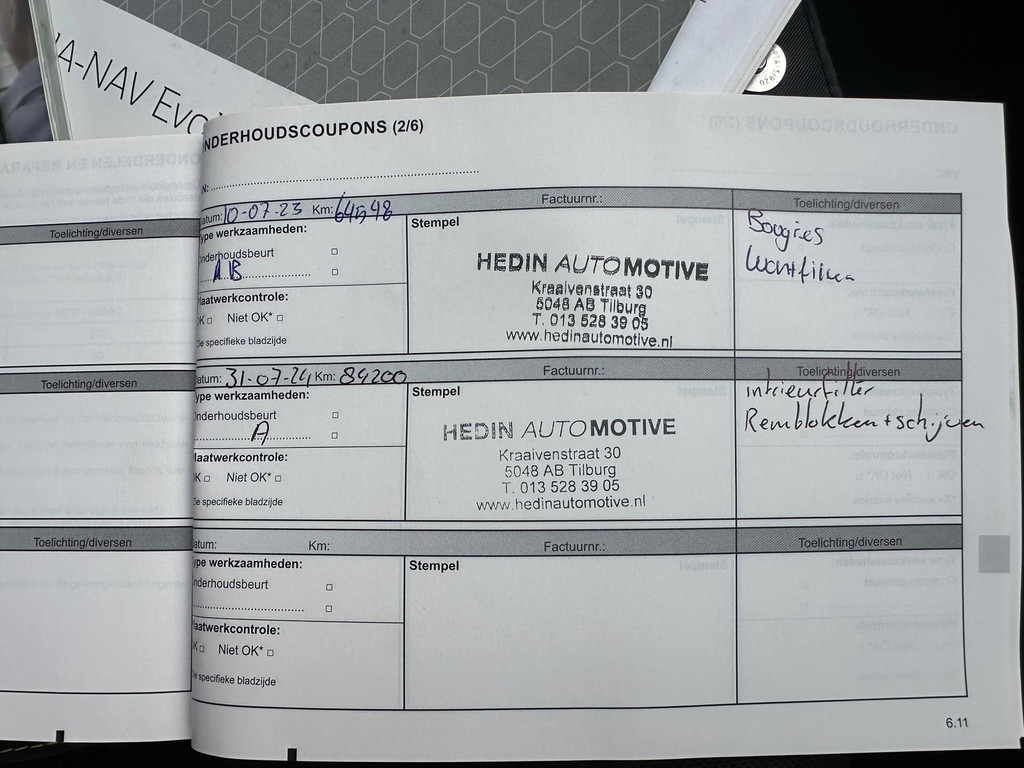 A-NAV Evo
NDERHOUDSCOUPONS (2/6)
N:
Toelichting/diversen
atum: 10-07-23 Km:
Factuurnr.:
Toelichting/diversen
ype werkzaamheden:
nderhoudsbeurt
AB
laatwerkcontrole:
K Niet OK*
ie specifieke bladzijde
Stempel
HEDIN AUTOMOTIVE
Kraaivenstraat 30
5048 AB Tilburg
T. 013 528 39 05
www.hedinautomotive.nl
Bougies
Toelichting/diversen
atum: 31-07-24 Km: 84200
Factuurnr.:
Toelichting/diversen
ype werkzaamheden:
nderhoudsbeurt
A
laatwerkcontrole:
K Niet OK*
ie specifieke bladzijde
Stempel
HEDIN AUTOMOTIVE
Kraaivenstraat 30
5048 AB Tilburg
T. 013 528 39 05
www.hedinautomotive.nl
intrieurfilter
Remblokken + schijven
Toelichting/diversen
atum: Km:
Factuurnr.:
Toelichting/diversen
ype werkzaamheden:
nderhoudsbeurt
laatwerkcontrole:
K Niet OK*
ie specifieke bladzijde
Stempel
6.11